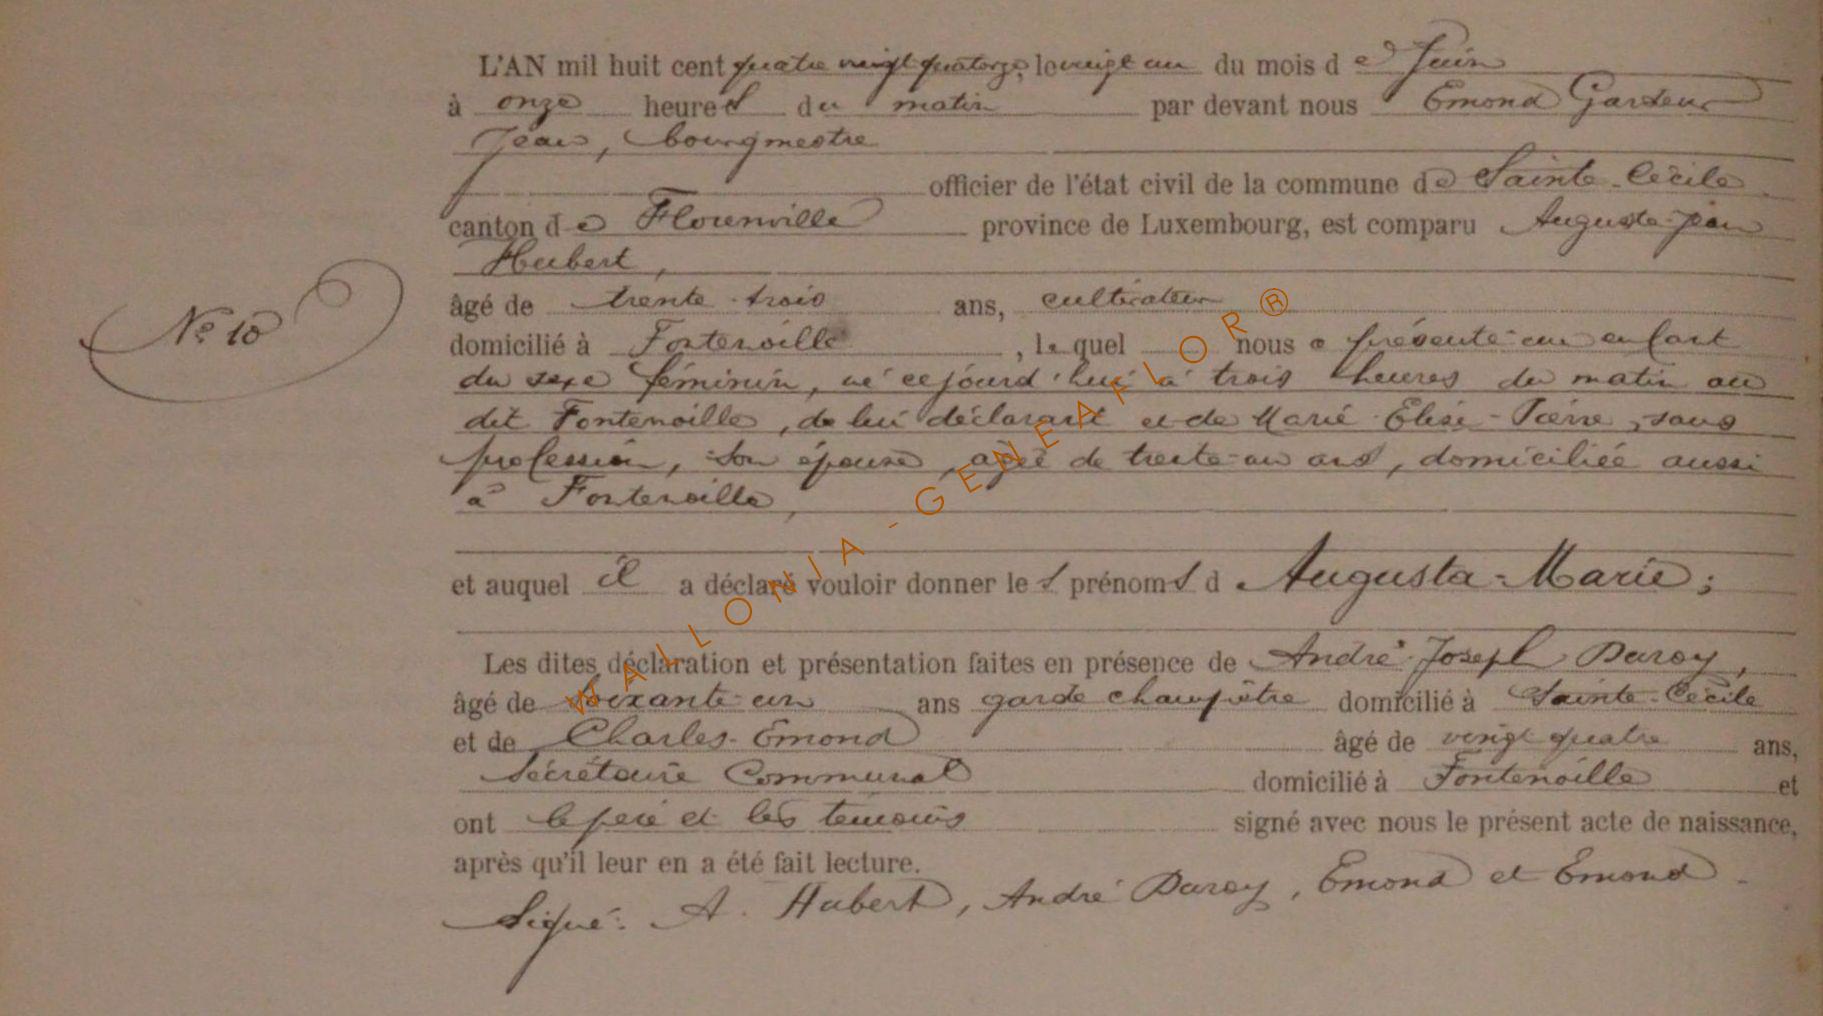 L'AN mil huit cent quatre vingt quatorze, le vingt un du mois de Juin
à onze heures du matin par devant nous Emond Garseur
Jean, bourgmestre
officier de l'état civil de la commune de Sainte-Cécile
canton de Florenville province de Luxembourg, est comparu Auguste-Jean
Hubert,
N° 10
âgé de trente-trois ans, cultivateur
domicilié à Fontenoille, lequel nous a présenté un enfant
du sexe féminin, né cejourd'hui à trois heures du matin au
dit Fontenoille, de lui déclarant et de Marie-Elise-Pierre, sans
profession, son épouse, âgée de trente-un ans, domiciliée aussi
à Fontenoille,
et auquel il a déclaré vouloir donner les prénoms d Augusta-Marie;
Les dites déclaration et présentation faites en présence de André-Joseph Daroy,
âgé de soixante-un ans garde champêtre domicilié à Sainte-Cécile
et de Charles-Emond âgé de vingt quatre ans,
Sécrétaire Communal domicilié à Fontenoille et
ont le père et les témoins signé avec nous le présent acte de naissance,
après qu'il leur en a été fait lecture.
Signé: A. Hubert, André Daroy, Emond et Emond
WALLONIA-GENEAFLOR®